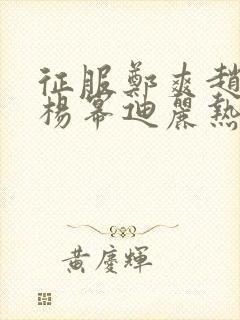 征服鄭爽趙
楊幂迪麗熱
黃慶輝